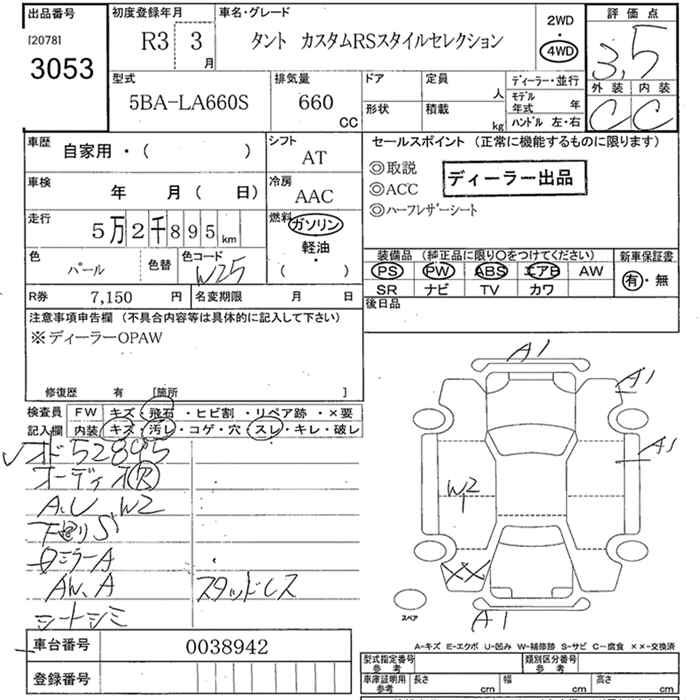 出品番号
[2078]
3053
初度登録年月
R3 3 月
車名・グレード
タント カスタムRSスタイルセレクション
2WD
・
4WD
評価点
3.5
外装 内装
C C
型式
5BA-LA660S
排気量
660
CC
ドア
定員
人
形状
積載
kg
ディーラー・並行
モデル
年式 年
ハンドル 左・右
車歴
自家用・( )
シフト
AT
車検
年 月( 日)
冷房
AAC
走行
5万2千895km
燃料
ガソリン
軽油・
( )
色
パール
色替
色コード
W25
R券 7,150 円
名変期限 月 日
セールスポイント (正常に機能するものに限ります)
◎取説
◎ACC
◎ハーフレザーシート
ディーラー出品
装備品 (純正品に限り○をつけてください)
PS PW ABS エアB AW
SR ナビ TV カワ
新車保証書
有・無
後日品
注意事項申告欄 (不具合内容等は具体的に記入して下さい)
※ディーラーOPAW
修復歴 有 [箇所 ]
検査員
記入欄
FW キズ・飛石・ヒビ割・リペア跡・×要
内装 キズ・汚レ・コゲ・穴・スレ・キレ・破レ
52895
オーディオ穴
A.U W2
下廻りS
ミラーA
スタッドレス
シートシミ
A1
A1
A1
W2
XX
A1
スペア
A-キズ E-エクボ U-凹み W-補修跡 S-サビ C-腐食 ××-交換済
車台番号 0038942
登録番号
型式指定番号
参考
類別区分番号
参考
車庫証明用
参考
長さ cm
幅 cm
高さ cm